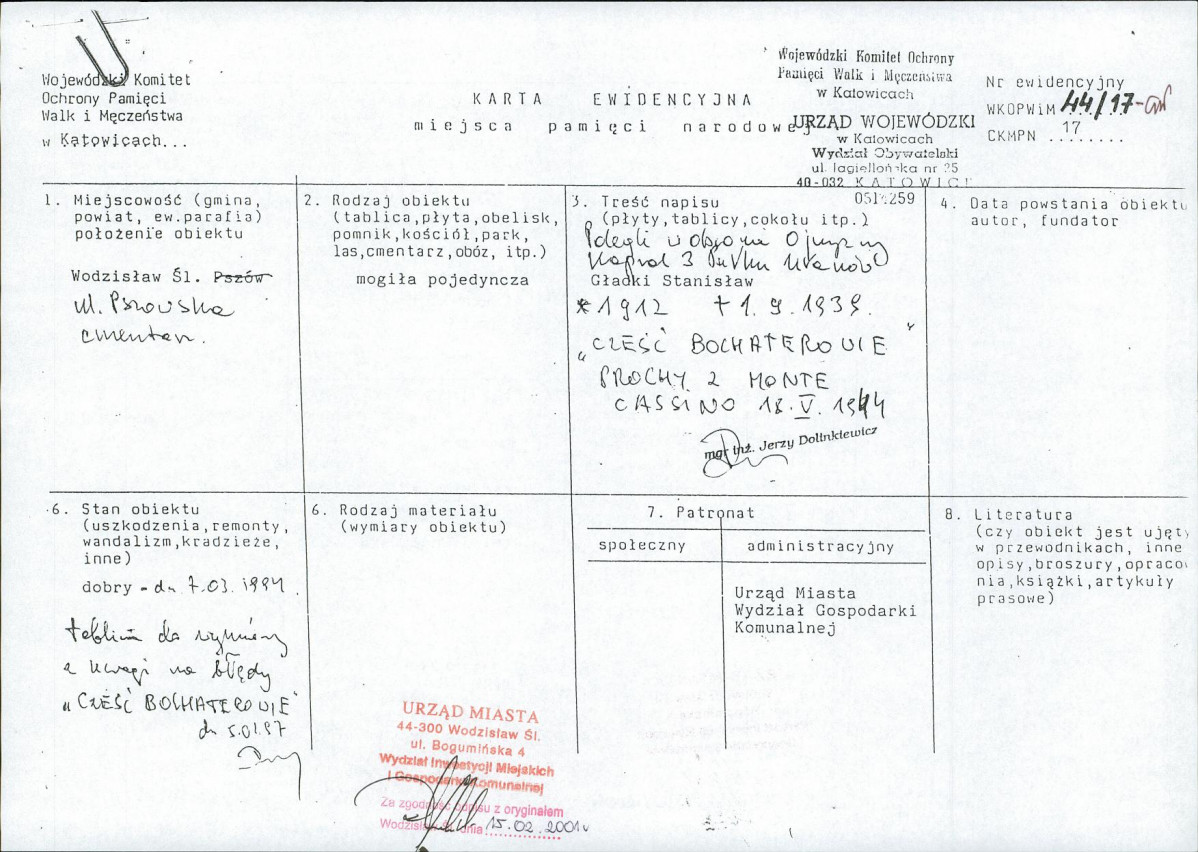 Wojewódzki Komitet
Ochrony Pamięci
Walk i Męczeństwa
w Katowicach...
KARTA EWIDENCYJNA
miejsca pamięci narodowej
Wojewódzki Komitet Ochrony
Pamięci Walk i Męczeństwa
w Katowicach
URZĄD WOJEWÓDZKI
w Katowicach
Wydział Obywatelski
ul. Jagiellońska nr 25
40-032 KATOWICE
0514259
Nr ewidencyjny
WKOPWiM 44/17
CKMPN 17
1. Miejscowość (gmina,
powiat, ew.parafia)
położenie obiektu
Wodzisław Śl. Pszów
ul. Pszowska
cmentarz.
2. Rodzaj obiektu
(tablica,płyta,obelisk,
pomnik,kościół,park,
las,cmentarz,obóz, itp.)
mogiła pojedyncza
3. Treść napisu
(płyty,tablicy,cokołu itp.)
Polegli w obronie Ojczyzny
Kapral 3 Pułku Ułanów
Gładki Stanisław
*1912 +1.9.1939.
"CZEŚĆ BOCHATEROWIE"
PROCHY Z MONTE
CASSINO 18.V.1944
mgr inż. Jerzy Dolinkiewicz
4. Data powstania obiektu
autor, fundator
6. Stan obiektu
(uszkodzenia,remonty,
wandalizm,kradzieże,
inne)
dobry - dn 7.03.1994.
tablica do wymiany
z uwagi na błędy
"CZEŚĆ BOCHATEROWIE"
dn 5.01.97
6. Rodzaj materiału
(wymiary obiektu)
7. Patronat
społeczny
administracyjny
Urząd Miasta
Wydział Gospodarki
Komunalnej
8. Literatura
(czy obiekt jest ujęty
w przewodnikach, inne
opisy,broszury,opraco
nia,książki,artykuły
prasowe)
URZĄD MIASTA
44-300 Wodzisław Śl.
ul. Bogumińska 4
Wydział Inwestycji Miejskich
i Gospodarki Komunalnej
Za zgodność odpisu z oryginałem
Wodzisław Śl. dnia 15.02.2001r